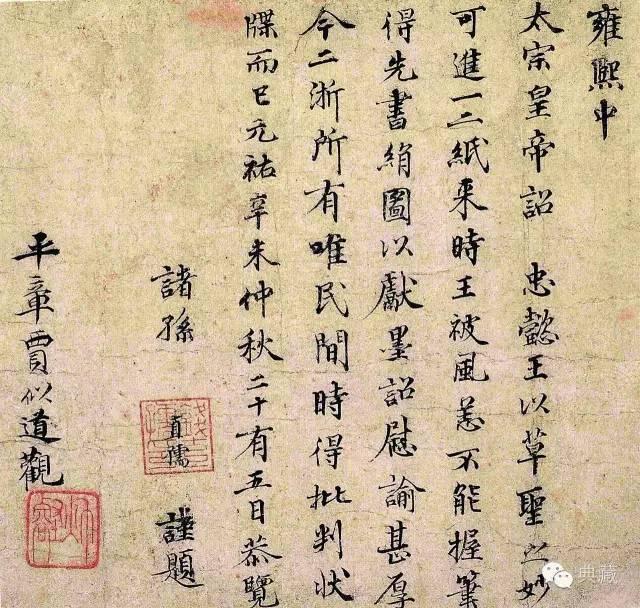 雍熙中
太宗皇帝詔 忠懿王以草聖之妙
可進一二紙来時王被風恙不能握筆
得先書絹圖以獻墨詔慰諭甚厚
今二浙所有唯民間時得批判状
牒而已元祐辛未仲秋二十有五日恭覽
諸孫 直孺 謹題
平章賈似道觀
典藏